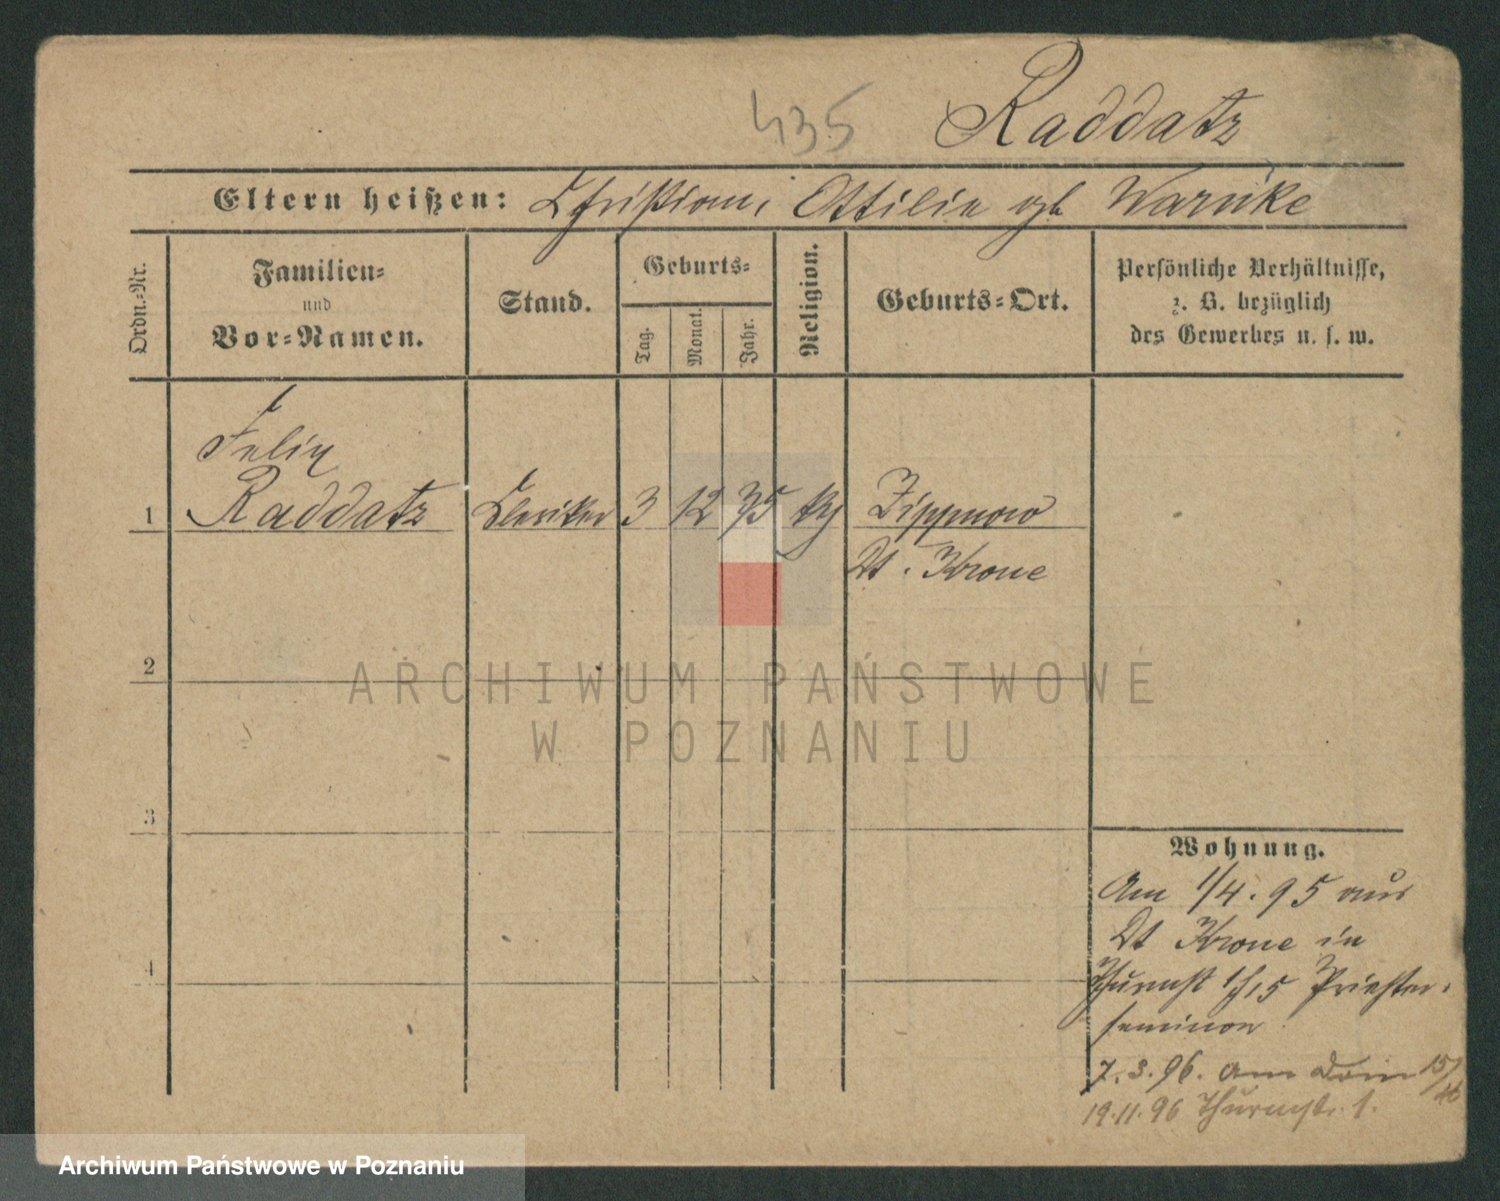 435 Raddatz
Eltern heißen: Christian, Ottilie geb Warnke
Ordn.=Nr.
Familien=
und
Vor=Namen.
Stand.
Geburts=
Tag.
Monat.
Jahr.
Religion.
Geburts=Ort.
Persönliche Verhältnisse,
z. B. bezüglich
des Gewerbes u. s. w.
Felix
1 Raddatz Cleriker 3 12 75 kth Zippnow
Dt. Krone
2
3
4
Wohnung.
Am 1/4. 95 aus
Dt Krone in
Thurmst 1/5 Priester-
seminar
7. 3. 96. Am Dom 15/
19.11.96 Thurmstr. 1.
ARCHIWUM PAŃSTWOWE
W POZNANIU
Archiwum Państwowe w Poznaniu